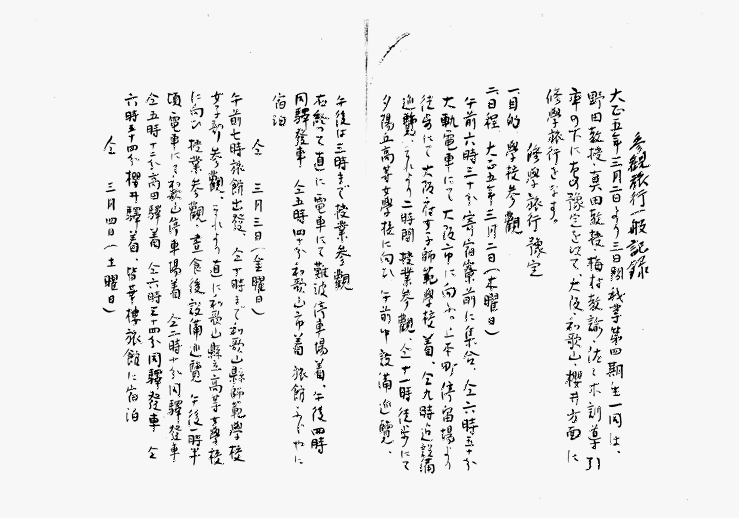 参観旅行一般記録
大正五年三月二日より三日間我等第四期生一同は、
野田教授・真田教授・梅村教諭・佐々木訓導引
率の下に左の豫定を以て、大阪、和歌山、櫻井方面に
修學旅行をなす。
修學旅行豫定
一目的 學校参觀
二日程 大正五年三月二日(木曜日)
午前六時三十分寄宿寮前に集合、仝六時五十分
大軌電車にて大阪市に向ふ、上本町停留場より
徒歩にて大阪府女子師範學校着、仝九時迄設備
巡覽、それより二時間授業参觀、仝十一時徒歩にて
夕陽丘高等女學校に向ひ午前中設備巡覽、
午後は三時まで授業参觀
右終つて直に電車にて難波停車場着、午後四時
同驛發車 仝五時四十分和歌山市着 旅館ふぢやに
宿泊
仝 三月三日(金曜日)
午前七時旅館出發、仝十時まで和歌山縣師範學校
女子部参觀、それより直に和歌山縣立高等女學校
に向ひ授業参觀、晝食後設備巡覽 午後一時半
頃電車にて和歌山停車場着 仝二時十分同驛發車
仝五時十二分高田驛着 仝六時三十四分同驛發車 仝
六時五十四分櫻井驛着、皆花樓旅館に宿泊
仝 三月四日(土曜日)